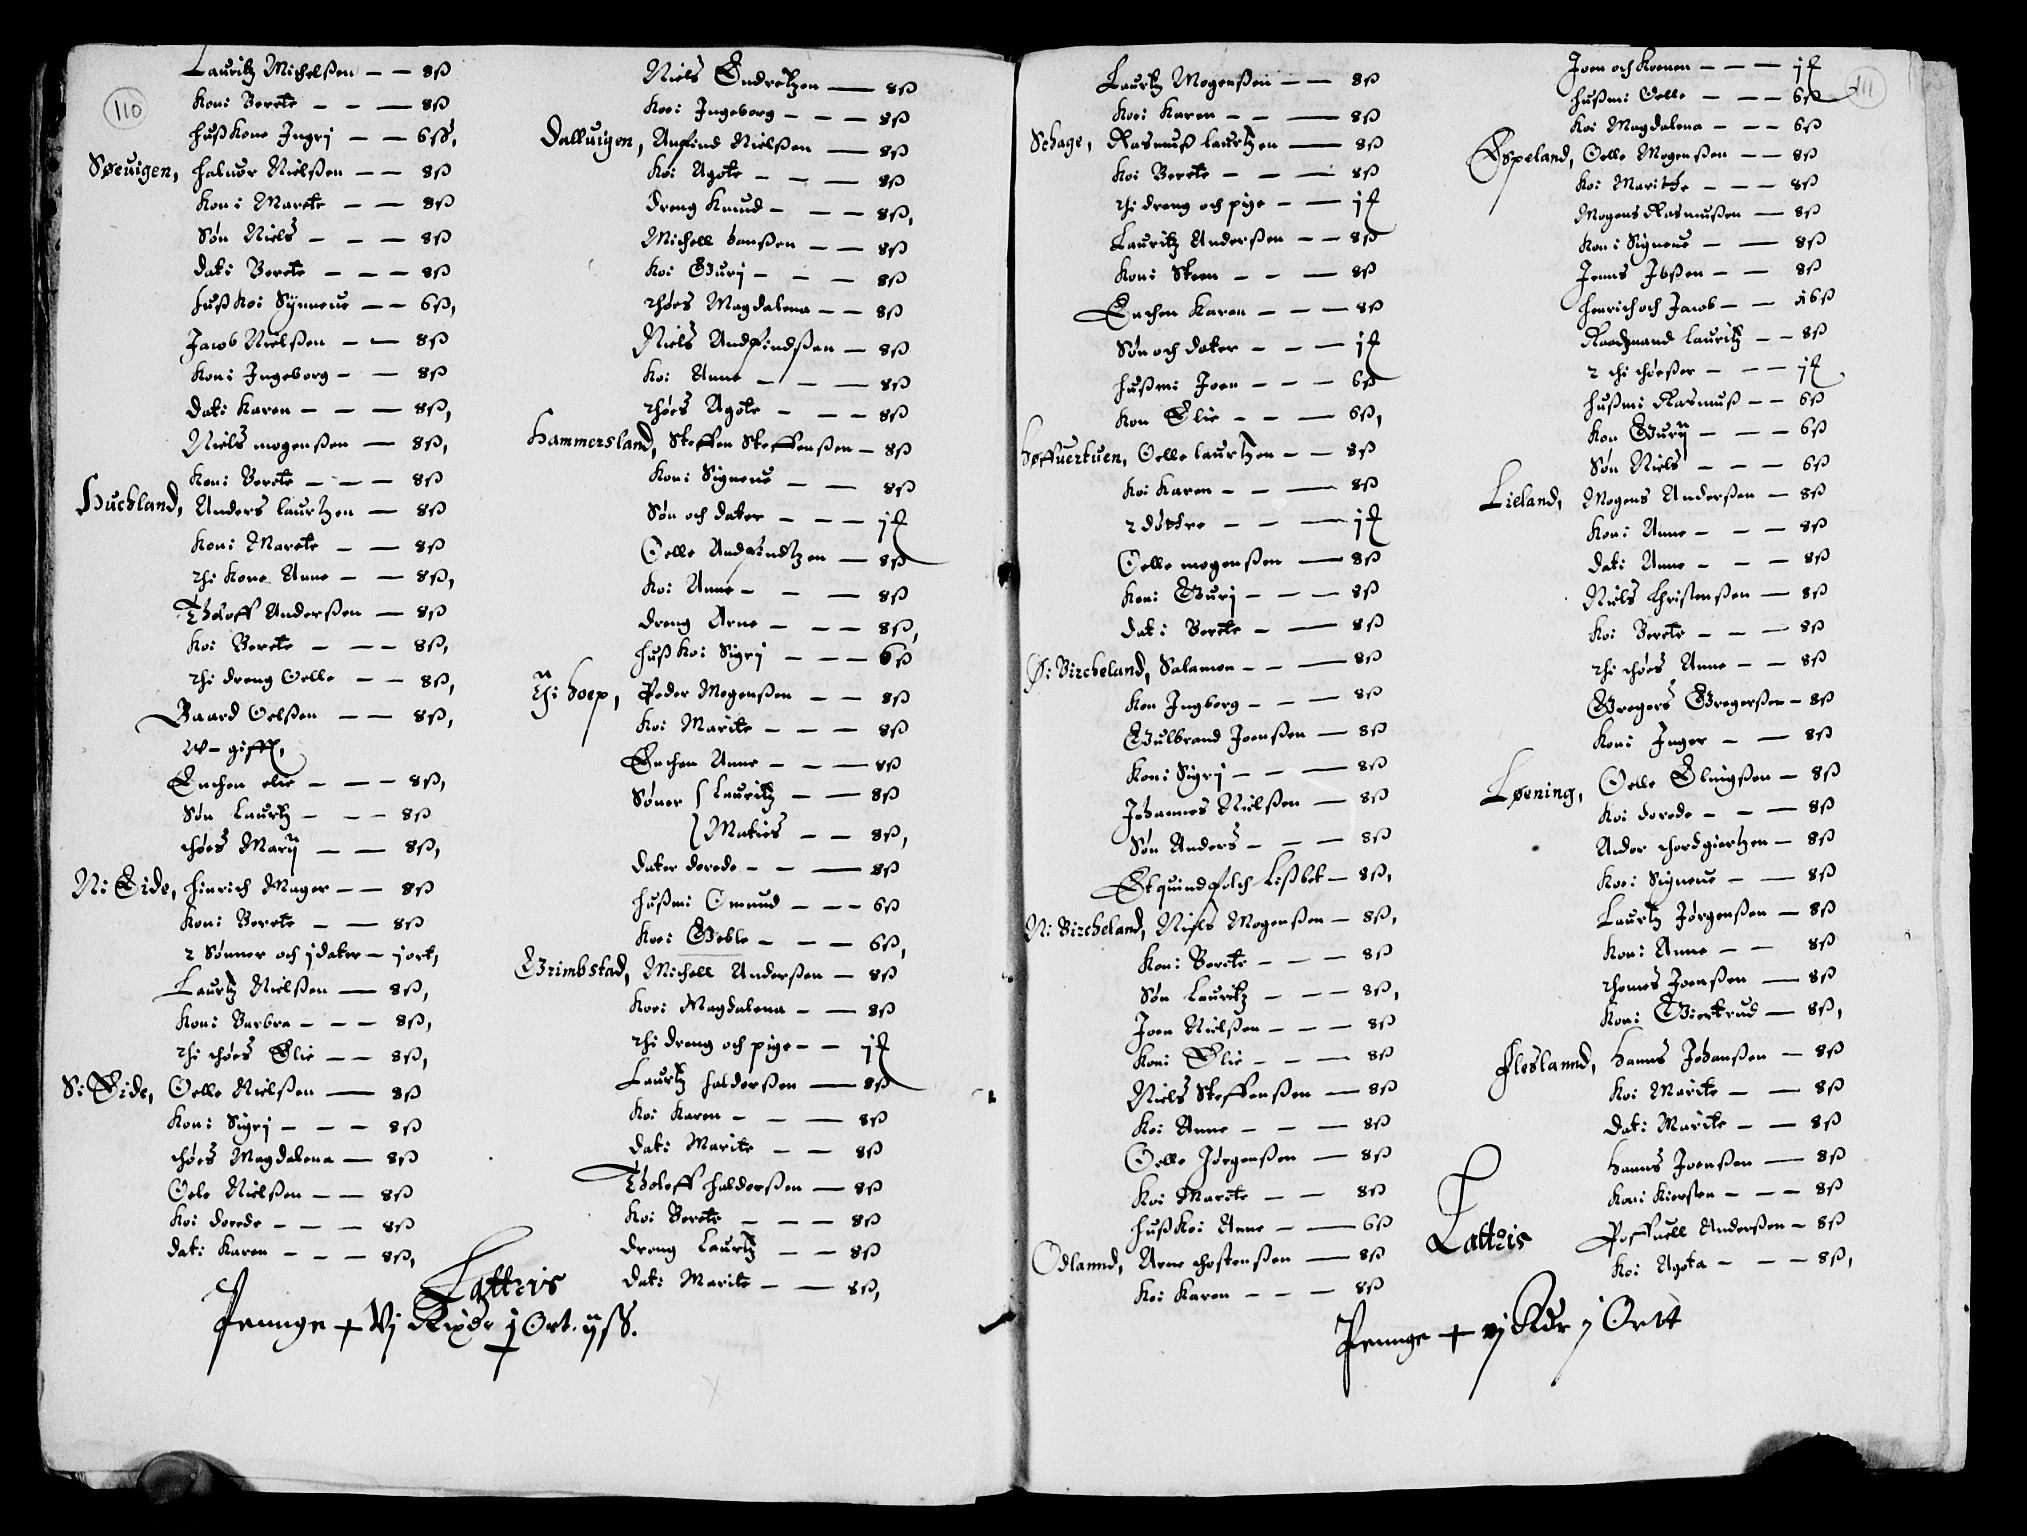 110
Lauritz Michelßen — — 8ß
Koni Berete — — — 8ß
hußkone Ingrj — — 6ß,
Søeuigen, Haluor Nielßen — — 8ß
Koni Marete — — 8ß
Søn Niels — — — 8ß
Dat: Berete — — — 8ß
huß koi Synneue — — 6ß,
Jacob Nielßen — — 8ß
Koni Ingeborg — — 8ß
Dat: Karen — — — 8ß,
Niels mogenßen — 8ß,
Koni Berete — — — 8ß
Huchland, Anders laurtzen — 8ß
Koni Marete — — 8ß
thi Kone Anne — — 8ß,
Tholoff Anderßen — 8ß
Koi Berete — — — 8ß,
thi dreng Oelle — — 8ß,
Baard Oelßen — — 8ß,
w-gifft,
Enchen elie — — — 8ß,
Søn Laurtz — — — 8ß
thøes Marij — — 8ß,
N: Eide, Hinrich Mager — — 8ß
Koni Berete — — 8ß
2 Sønner och j dater — j ort,
Laurtz Nielßen — 8ß,
Koni Barbra — — — 8ß,
thi thøes Elie — — 8ß,
S: Eide, Oelle Nielßen — 8ß
Kon: Sigrj — — — 8ß
thøes Magdalena — 8ß
Oele Nielßen — — 8ß
Koi dorede — — — 8ß
Dat: Karen — — — 8ß,
Niels Endretzen — 8ß
Koei Ingeborg — — — 8ß
Dalluigen, Anfind Nielßen — 8ß
Koi Agote — — — 8ß
dreng Knud — — — 8ß,
Michell hanßen — — 8ß
Koi Gurj — — — 8ß
thøes Magdalena — — 8ß
Niels Andfindßen — 8ß
Koi Anne — — — 8ß
thøes Agote — — — 8ß
Hammersland, Steffen Steffenßen — 8ß
Koni Signeue — — 8ß
Søn och dater — — — j ƒ
Oelle Andfindtzen — 8ß
Koi Anne — — — 8ß
dreng Arne — — — 8ß,
huß koi Sigrj — — — 6ß
Y: hoep, Peder Mogenßen — — 8ß
Koi Marite — — — 8ß
Enchen Anne — — — 8ß
Søner { Lauritz — — 8ß
{ Maties — — 8ß,
dater dorede — — — 8ß
hußmi Omund — — — 6ß
Koei Gøble — — — 6ß,
Grimbstad, Michell Anderßen — 8ß
Koei Magdalena — — 8ß
thi dreng och pige — — j ƒ
Laurtz halderßen — 8ß
Koi Karen — — — 8ß
Dat: Marite — — 8ß
Tholoff halderßen — 8ß
Koi Berete — — — 8ß
dreng Laurtz — — 8ß
Dat: Marite — — 8ß,
Lattris
Penge + Vj Rixdr j Ort. ijß.
111
Laurtz Mogenßen — — 8ß
Koei Karen — — — 8ß
Schage, Rasmuß laurtzen — 8ß
Koi Berete — — — 8ß
thi dreng och pige — — j ƒ
Lauritz Anderßen — — 8ß
Koni Steen — — — 8ß
Enchen Karen — — — 8ß
Søn och dater — — — j ƒ
hußmi Joen — — — 6ß
Kon Elie — — — 6ß,
Høffuertuen, Oelle laurtzen — — 8ß
Koi Karen — — — 8ß
2 døttre — — — j ƒ
Oelle mogenßen — 8ß
Koni Gurj — — — 8ß
Dat: Berete — — 8ß
Ø: Bircheland, Salamon — — — 8ß
Kon Ingborg — — — 8ß
Gulbrand Joenßen — 8ß
Koni Sigrj — — — 8ß
Johannes Nielßen — 8ß
Søn Anders — — — 8ß
Et quindfolch Lißbet — 8ß,
N: Bircheland, Niels Mogenßen — 8ß,
Kon: Berete — — — 8ß
Søn Lauritz — — — 8ß,
Joen Nielßen — — — 8ß
Koni Elie — — — 8ß
Niels Steffenßen — 8ß
Koi Anne — — — 8ß
Oelle Jørgenßen — 8ß
Koi Marete — — 8ß
huß Koi Anne — — 6ß
Odlannd, Arne thostenßen — 8ß
Koi Karen — — — 8ß
Joen och Konen — — — j ƒ
hußmi Oelle — — — 6ß
Koi Magdalena — — — 6ß
Espeland, Oelle Mogenßen — — 8ß
Koi Marithe — — — 8ß
Mogens Rasmußen — 8ß
Koni Signeue — — 8ß
Jenns Ibßen — — 8ß
Henrich och Jacob — — 16ß
Raadzmand Lauritz — — 8ß
2 thi thøeßer — — — j ƒ
hußmi Rasmuß — — 6ß
Kon Gurij — — — 6ß
Søn Niels — — — 6ß
Lieland, Mogens Anderßen — 8ß
Koni Anne — — — 8ß
Dat: Anne — — — 8ß
Niels Christenßen — 8ß
Koi Berete — — — 8ß
thi thøes Anne — — 8ß
Gregers Gregerßen — 8ß
Koni Inger — — 8ß
Løening, Oelle Elingßen — 8ß
Koi dorede — — — 8ß
Ander thordgiertzen — 8ß
Koei Signeue — — 8ß
Laurtz Jørgenßen — 8ß
Koni Anne — — 8ß
thomes Joenßen — 8ß
Kon: Giertrud — 8ß,
Fleslannd, Hanns Johanßen — 8ß
Koi Marite — — 8ß
Dat: Marite — — 8ß
Hanns Joenßen — 8ß
Koni Kiersten — — — 8ß
Poffuell Anderßen — 8ß
Koi Agota — — — 8ß,
Lattris
Penge + vj Rdr j Ortt